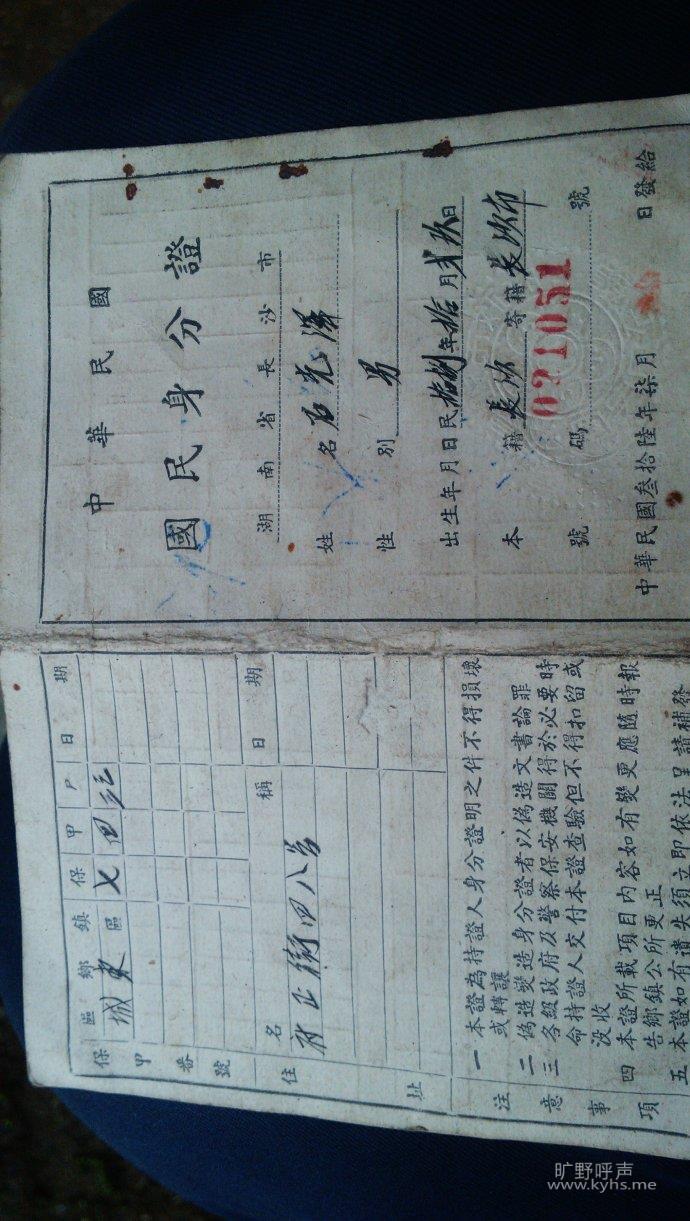 中華民國
國民身分證
湖南省長沙市
姓名 石光澤
性別 男
出生年月日民拾捌年拾月貳玖日
本籍 長沙 寄籍 長沙市
號碼 021051 號
中華民國叁拾陸年柒月 日發給
保甲番號
區鄉鎮 保 甲 戶 日期
城東區 七 四
住址
名稱 日期
府正街四八号
注意事項
一 本證為持證人身分證明之件不得損壞
或轉讓
二 偽造變造身分證者以偽造文書論罪
三 各級政府及警察保安機關得於必要時
命持證人交付本證查驗但不得扣留或
沒收
四 本證所載項目內容如有變更應隨時報
告鄉鎮公所更正
五 本證如有遺失須立即依法呈請補發
旷野呼声
www.kyhs.me